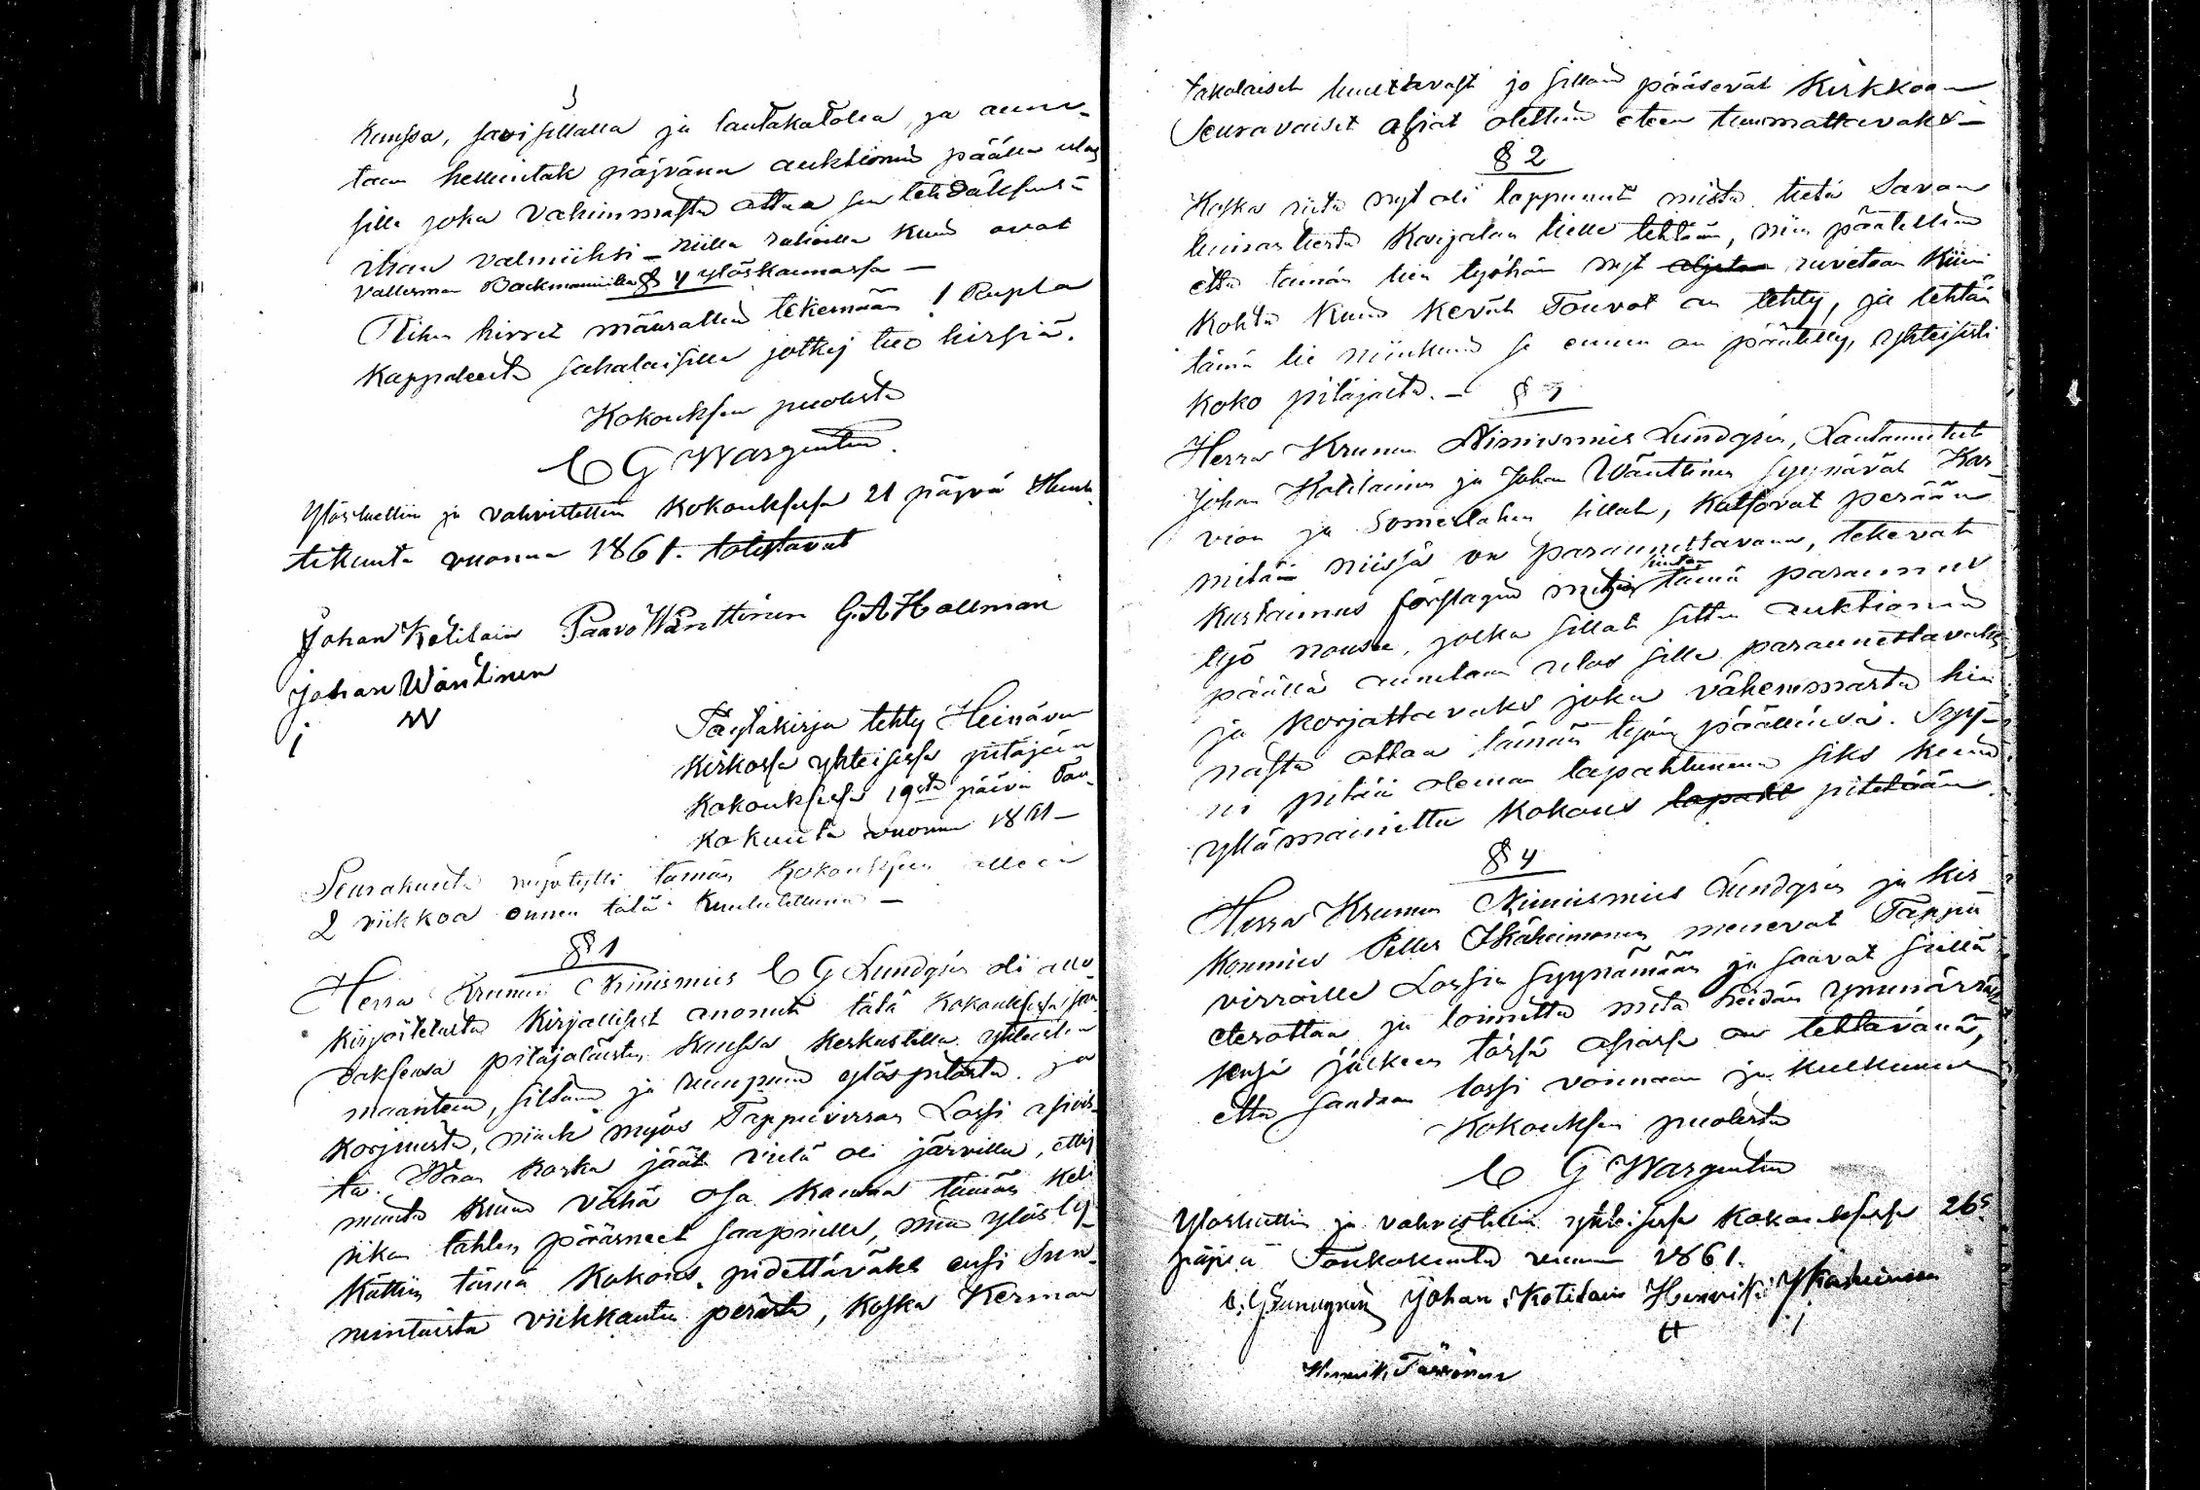 kanssa, savisillalla ja lautakatolla, ja anne-
taan helluntak päjvänä auktionin päällä ulos
sille joka vähimmästä ottaa sen tehdäksens
ihan valmiiksi – niillä rahoilla kuin ovat
Vallesman Backmannilla § 4 ylöskannossa –
Riihen hirret määrättiin tekemään 1 Rupla
Kappaleesta sahalaisilla jotka tuo hirsiä.
Kokouksen puolesta
C G Wargentin.
Ylösluettiin ja vahvistettiin Kokouksessa 21 päjvä Huh-
tikuuta vuonna 1861. todistavat
Johan Kotilain Paavo Wänttinen G. A Hollman
Johan Wäntinen
Pöytäkirja tehty Heinäve
Kirkossa yhteisessä pitäjän
Kokouksessa 19sta päivä Tou-
kokuuta vuonna 1861 –
Seurakunta myötytti tämän Kokouksen olleen
2 viikkoa ennen tätä kuulutettuna –
§ 1
Herra Krunun Nimismies C G Lundgrén oli allo-
kirjoitetusta Kirjallisest anonut tätä Kokouksessa saa-
daksensa pitäjäläisten kanssa keskustella yhteisten
maantein, siltain ja rumpuin ylöspidosta ja
korjuusta, niink myös Tappuvirran Lossi asias-
ta. Waan koska jäät vielä oli järvillä, ettej
muuta kuin vähä osa kansaa tämän keli
rikon tähden päässeet saapuville, niin ylösly-
kättiin tämä Kokous pidettäväks ensi Sun-
nuntaista viikkautta perästä, koska Kerman
takalaiset luultavast jo silloin pääsevät Kirkkoon
Seuravaiset asiat otettiin eteen tuumattavaks –
§ 2
Koska riita nyt oli loppunut mistä tietä Savon
linnan tiestä Karjalan tielle tehtään, niin päätettiin
että tämän tien työhön nyt aljetan ruvetaan kiini
Kohta kuin kevät Touvot on tehty, ja tehtän
tämä tie niinkuin se ennen on päätetty, yhteisesti
koko pitäjästä. – § 3
Herra Krunun Nimismies Lundgrén, Lautamiehet
Johan Kotilainen ja Johan Wänttinen syynävät Kar-
vion ja Somerlahen sillat, katsovat perään
mitää niissä on parannettavana, tekevät
kustannus förslagin mihin hintan tämä parannus
työ nousee, jotka sillat sitten auktionin
päällä annetaan ulos sille parannettavaks
ja korjattavaks joka vähemmästä hin
nasta ottaa tämän työn päällensä. Syy-
ni pitää oleman tapahtunena siks kuin
ylämainittu Kokous tapaht pidetään.
§ 4
Herra Krunun Nimismies Lundgrén ja kir
konmies Petter Ikäheimonen menevät Tappu
virroille Lossia syynämään ja saavat siellä
eterottaa ja toimittaa mitä heidän ymmärrik-
sensä jälkeen tässä asiassa on tehtävänä,
että saadaan lossi voimaan ja kulkuun
Kokouksen puolesta
C G Wargentin
Ylösluettiin ja vahvistettiin yhteisessä Kokouksessa 26s
päjvä Toukokuuta vuonna 1861.
C. G Lundgrén Johan Kotilain Henrik Ikäheimonen
Henrik Tarvonen